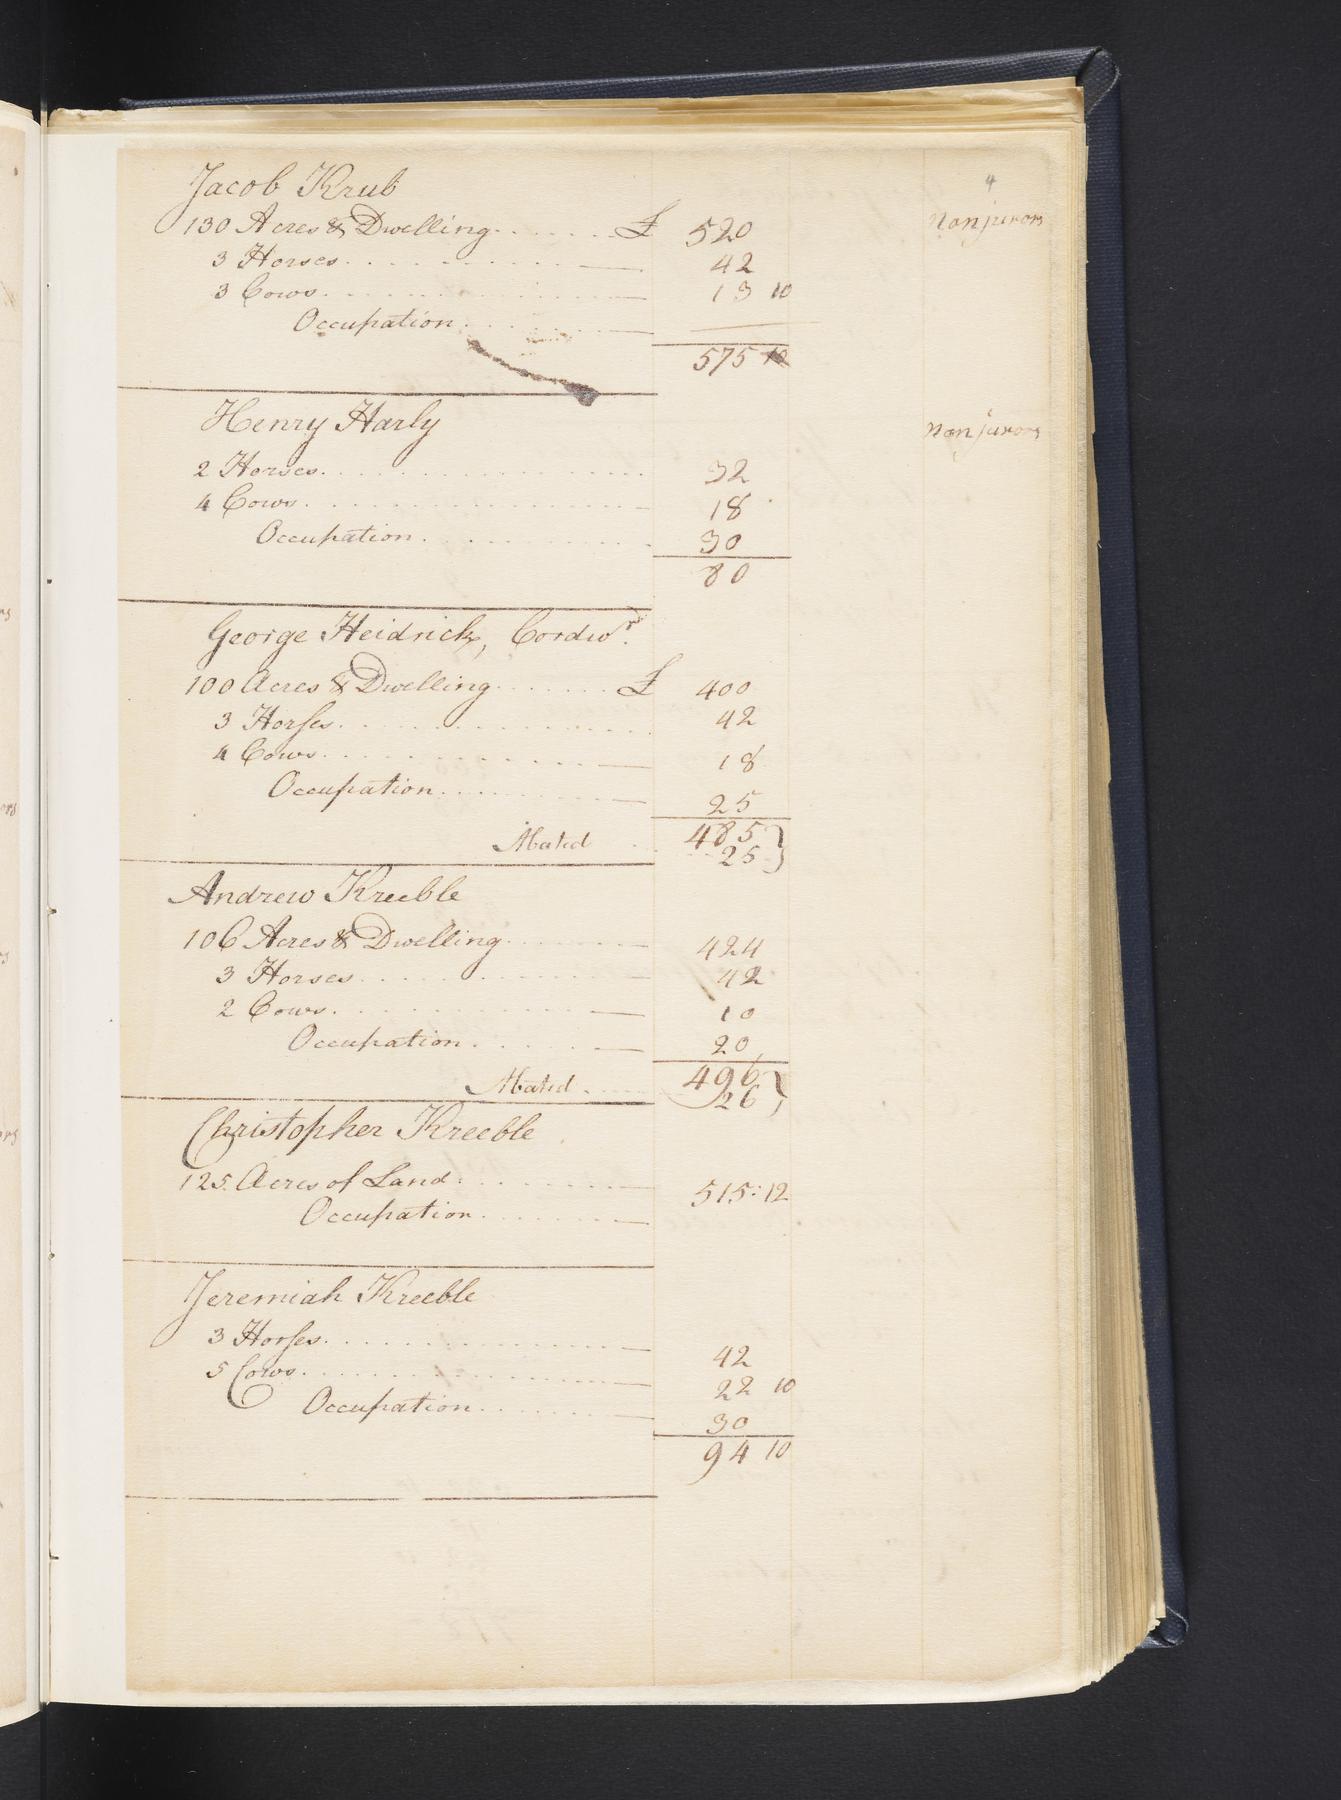 4
Jacob Krub
nonjurors
130 Acres & Dwelling £ 520
3 Horses 42
3 Cows 13 10
Occupation
575 10
Henry Harly
nonjurors
2 Horses 32
4 Cows 18
Occupation 30
80
George Heidrick, Cordwr.
100 Acres & Dwelling £ 400
3 Horses 42
4 Cows 18
Occupation 25
485
Abated 25
Andrew Kreeble
106 Acres & Dwelling 424
3 Horses 42
2 Cows 10
Occupation 20
496
Abated 26
Christopher Kreeble
125 Acres of Land 515:12
Occupation
Jeremiah Kreeble
3 Horses 42
5 Cows 22 10
Occupation 30
94 10